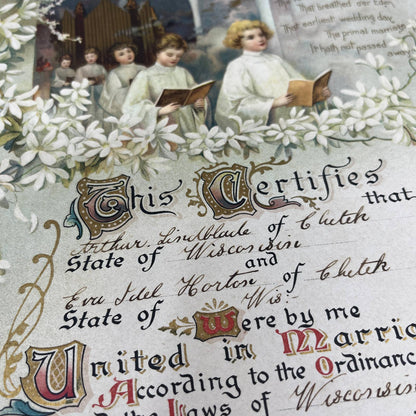 That breathed o'er Eden,
That earliest wedding day,
the primal marriage
It hath not passed away
This Certifies that
Arthur Lindblade of Chetek
State of Wisconsin
and
Eva Idel Horton of Chetek
State of Wis:
Were by me
United in Marria
According to the Ordinance
the Laws of Wisconsin